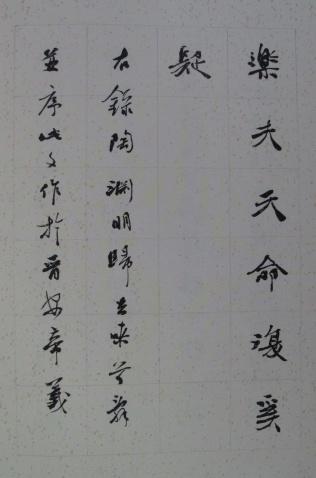 樂夫天命復奚
疑
右錄陶淵明歸去來兮辭
並序此文作於晉安帝義